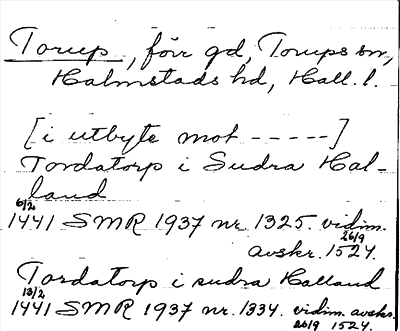 Torup, förr gd, Torups sn,
Halmstads hd, Hall. l.
[i utbyte mot - - - - -]
Tordatorp i Sudra Hal-
land
6/2
1441 SMR 1937 nr 1325. vidim.
avskr. 26/9 1524.
Tordatorp i sudra Halland
13/2
1441 SMR 1937 nr. 1334. vidim. avskr.
26/9 1524.